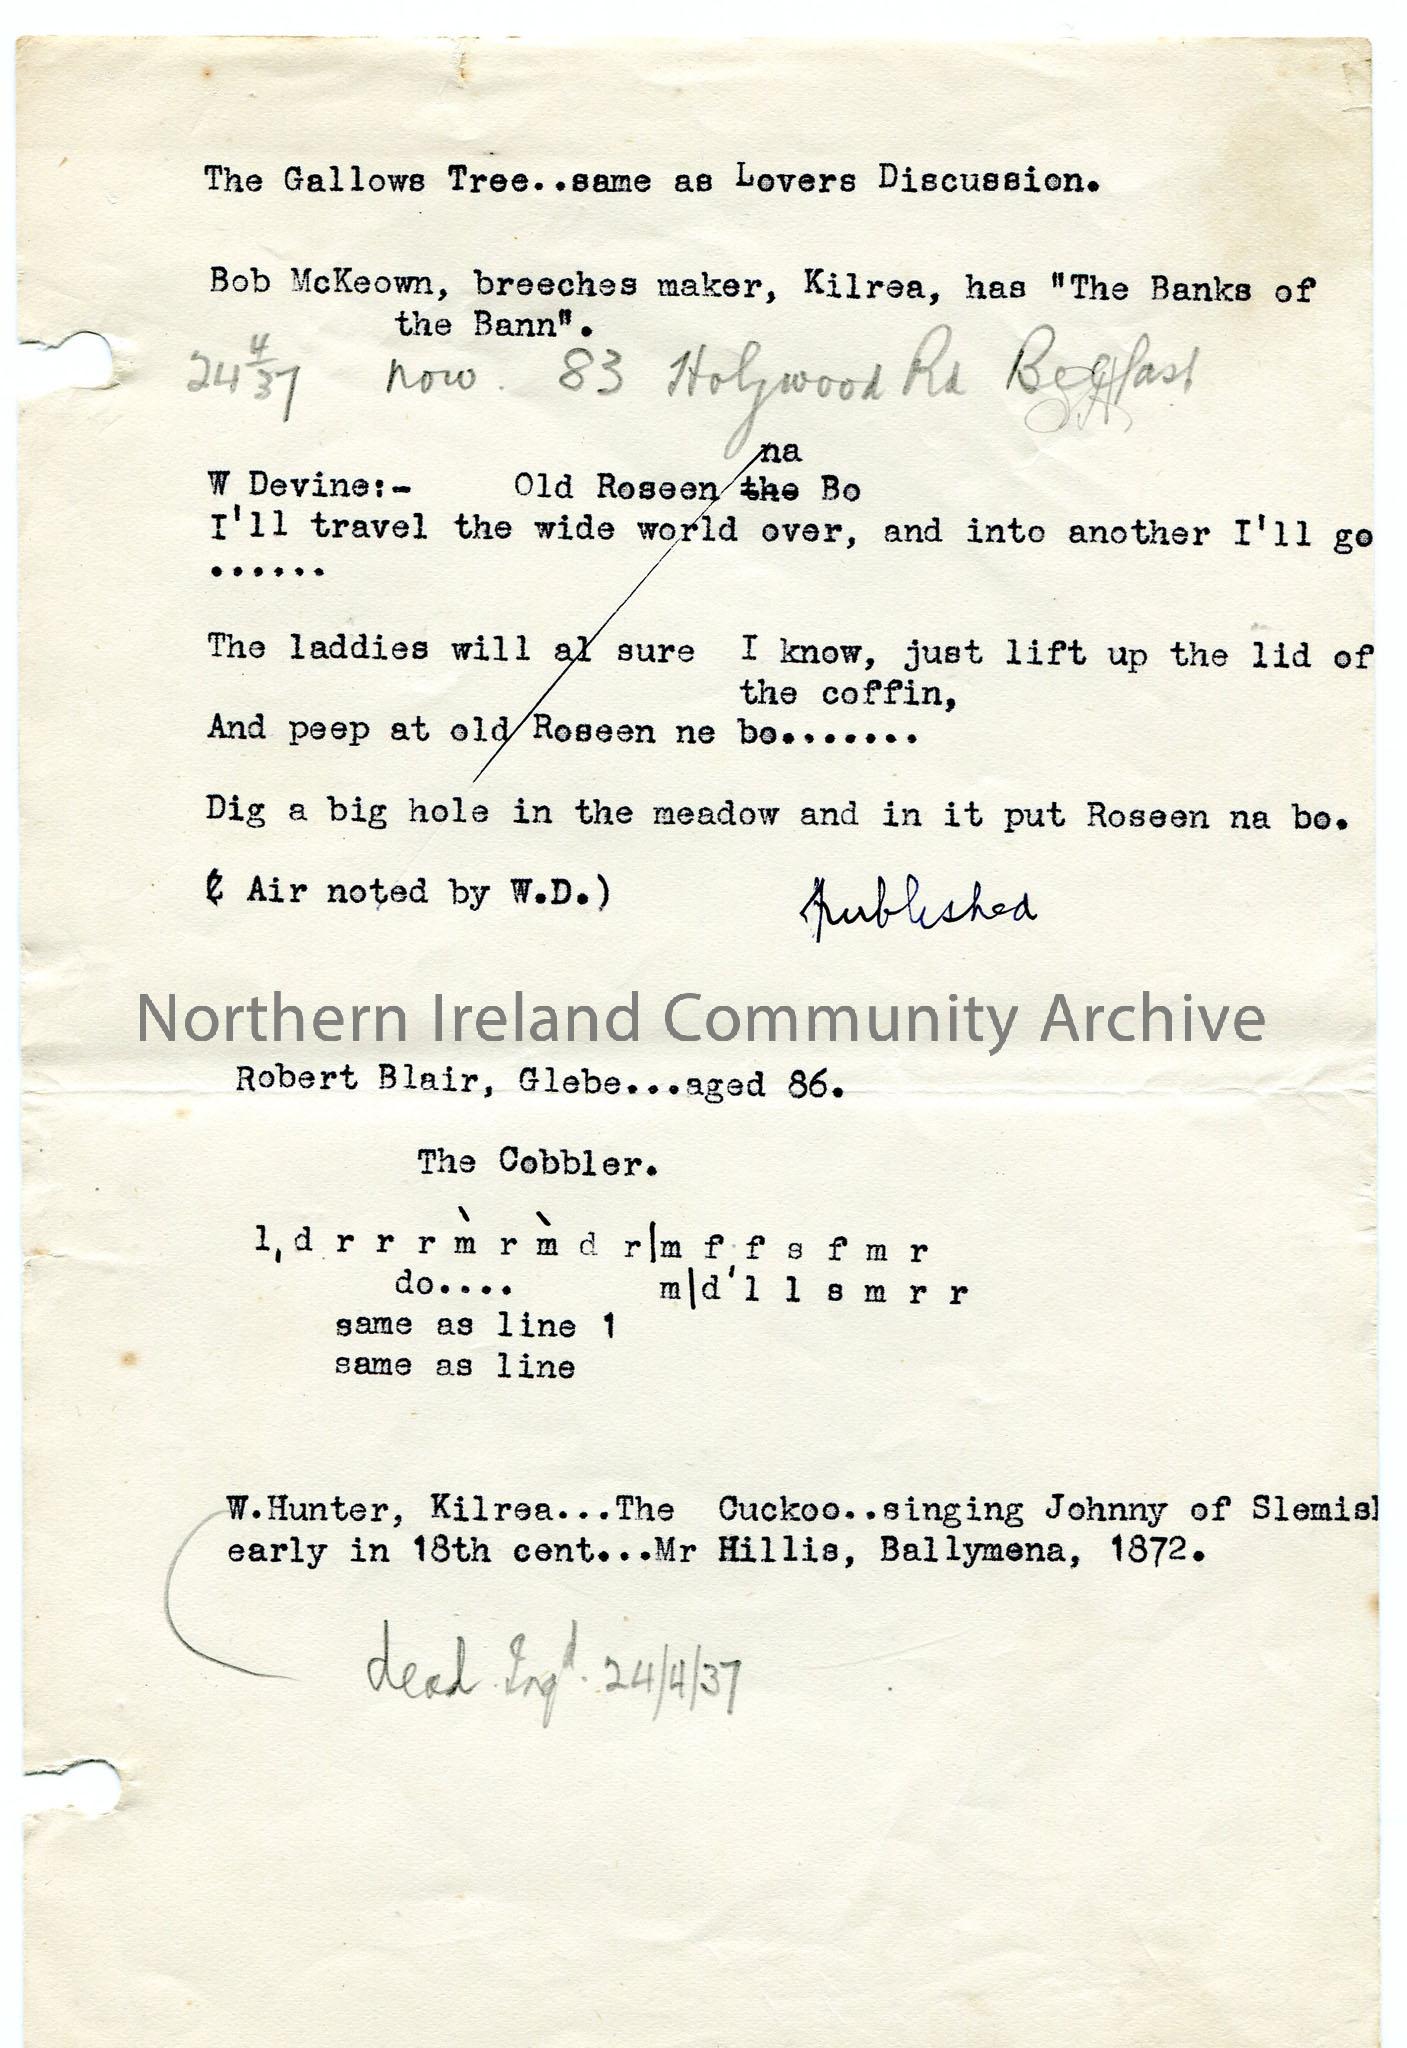 The Gallows Tree..same as Lovers Discussion.
Bob McKeown, breeches maker, Kilrea, has "The Banks of
the Bann".
24 4/37 now. 83 Holywood Rd Belfast
na
W Devine:- Old Roseen the Bo
I'll travel the wide world over, and into another I'll go
......
The laddies will al sure I know, just lift up the lid of
the coffin,
And peep at old Roseen ne bo.......
Dig a big hole in the meadow and in it put Roseen na bo.
( Air noted by W.D.) published
Northern Ireland Community Archive
Robert Blair, Glebe...aged 86.
The Cobbler.
l, d r r r m r m d r|m f f s f m r
do.... m|d' l l s m r r
same as line 1
same as line
W.Hunter, Kilrea...The Cuckoo..singing Johnny of Slemish
early in 18th cent...Mr Hillis, Ballymena, 1872.
dead Inqd. 24/4/37